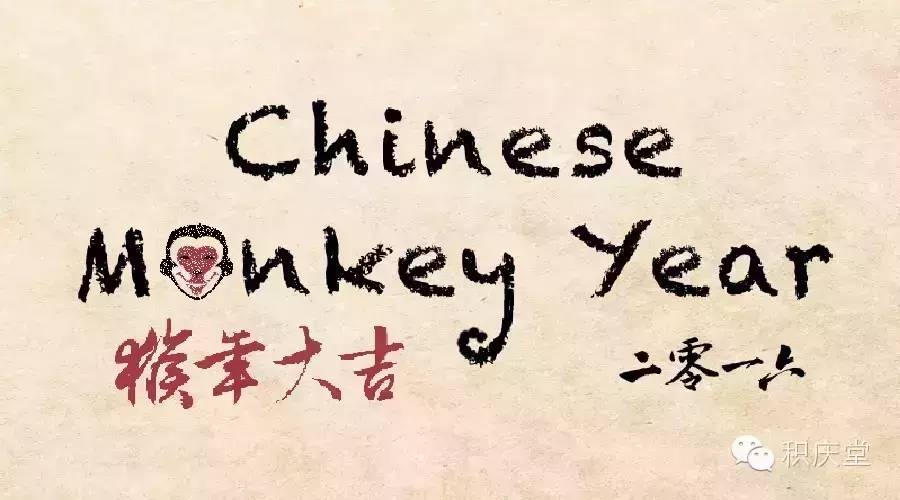 Chinese
Monkey Year
猴年大吉
二零一六
积庆堂